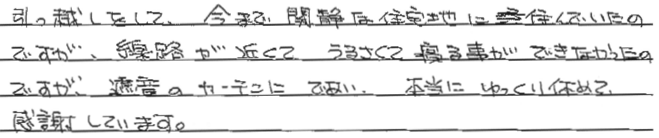 引っ越しをして、今まで閑静な住宅地に住んでいたの
ですが、線路が近くて うるさくて寝る事ができなかったの
ですが、遮音のカーテンに 出会い、本当にゆっくり休めて
感謝しています。